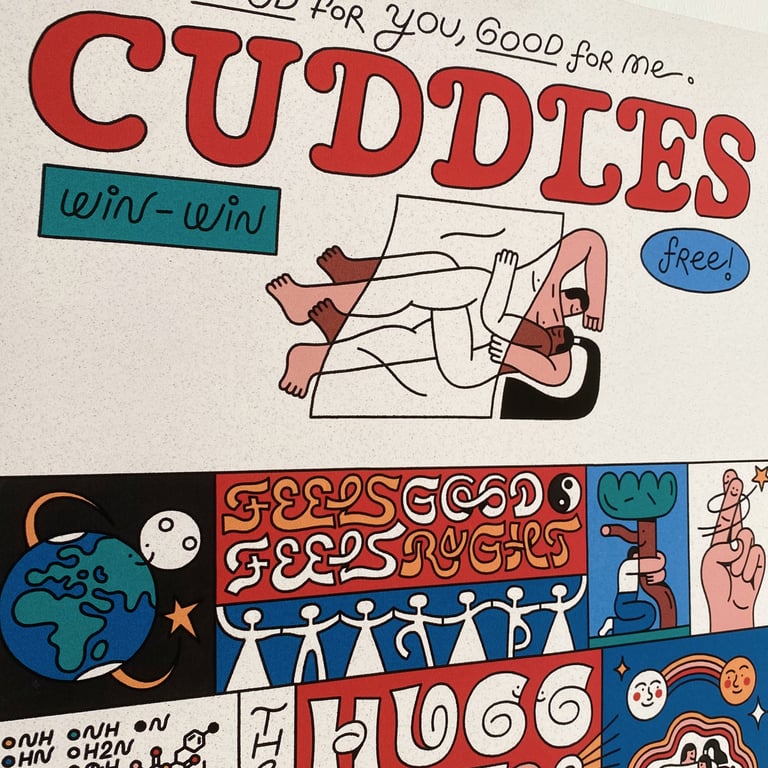 FOR YOU, GOOD FOR Me.
CUDDLES
WIN-WIN
fRee!
FEELS GOOD
FEELS RIGHT
HUGG
NH
NH
N
HN
H2N